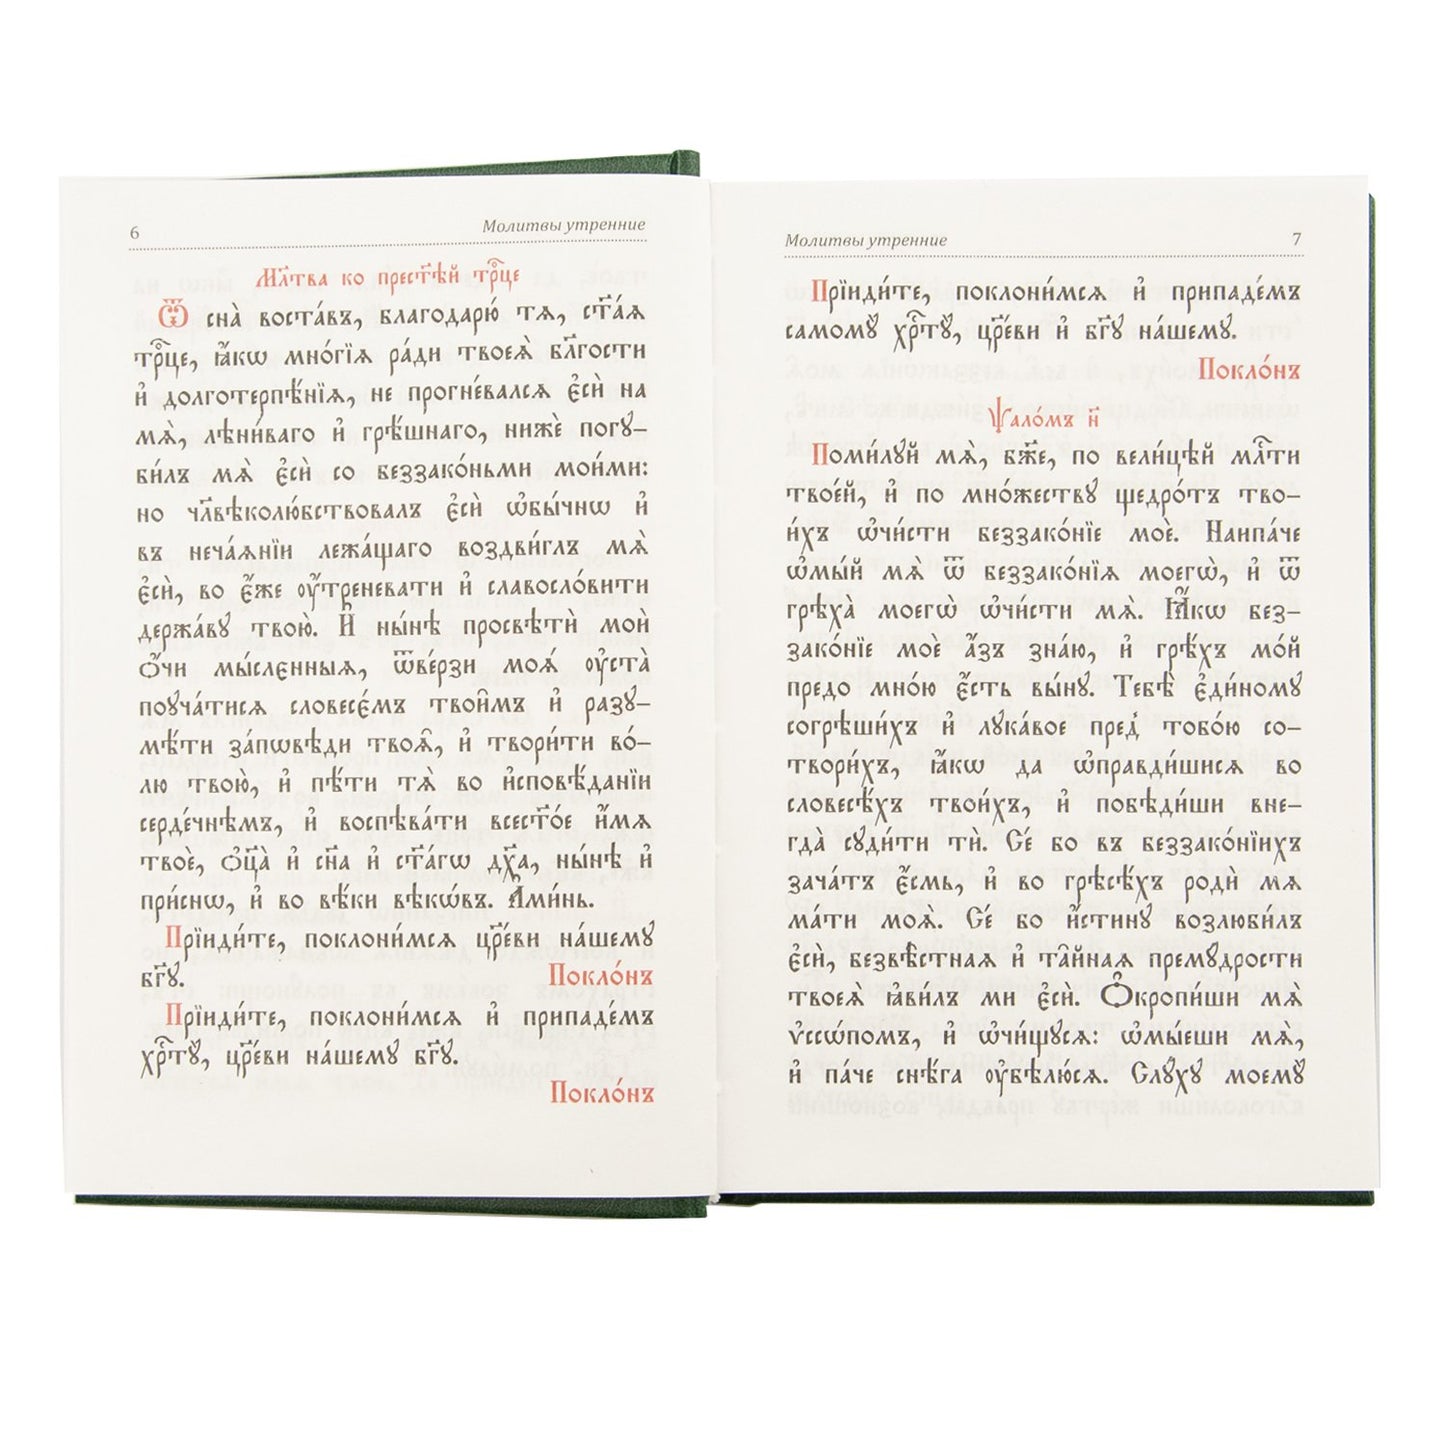 6 Молитвы утренние
Мл҃тва ко прест҃ѣй трⷪ҇цѣ
Ѿ сна̀ воста́въ, благодарю́ тѧ, ст҃аѧ
трⷪ҇це, ꙗ҆́кѡ мно́гїѧ ра́ди твоеѧ̀ бл҃гости
и҆ долготерпѣ́нїѧ, не прогнѣ́валсѧ є҆сѝ на
мѧ̀, лѣни́ваго и҆ грѣ́шнаго, нижѐ погу-
би́лъ мѧ̀ є҆сѝ со беззако́ньми мои́ми:
но чл҃вѣколю́бствовалъ є҆сѝ ѡ҆бы́чнѡ и҆
въ неча́ѧнїи лежа́щаго воздви́глъ мѧ̀
є҆сѝ, во є҆́же ᲂу҆́треневати и҆ славосло́вити
держа́вꙋ твою̀. И҆ ны́нѣ просвѣтѝ мои̑
ѻ҆́чи мы́слєнныѧ, ѿве́рзи моѧ́ ᲂу҆ста̀
поꙋча́тисѧ словесє́мъ твои̑мъ и҆ разꙋ-
мѣ́ти за́пѡвѣди твоѧ̑, и҆ твори́ти во́-
лю твою̀, и҆ пѣ́ти тѧ̀ во и҆сповѣ́данїи
серде́чнѣмъ, и҆ воспѣва́ти всест҃о́е и҆́мѧ
твоѐ, ѻ҆ц҃а̀ и҆ сн҃а и҆ ст҃а́гѡ дх҃а, ны́нѣ и҆
при́снѡ, и҆ во вѣ́ки вѣкѡ́въ. А҆ми́нь.
Прїиди́те, поклони́мсѧ цр҃е́ви на́шемꙋ
бг҃ꙋ. Покло́нъ
Прїиди́те, поклони́мсѧ и҆ припаде́мъ
хрⷭ҇тꙋ̀, цр҃е́ви на́шемꙋ бг҃ꙋ.
Покло́нъ
Молитвы утренние 7
Прїиди́те, поклони́мсѧ и҆ припаде́мъ
самомꙋ̀ хрⷭ҇тꙋ̀, цр҃е́ви и҆ бг҃ꙋ на́шемꙋ.
Покло́нъ
Ѱало́мъ н҃
Поми́лꙋй мѧ̀, бж҃е, по вели́цѣй млⷭ҇ти
твое́й, и҆ по мно́жествꙋ щедро́тъ тво-
и́хъ ѡ҆чи́сти беззако́нїе моѐ. Наипа́че
ѡ҆мы́й мѧ̀ ѿ беззако́нїѧ моегѡ̀, и҆ ѿ
грѣха̀ моегѡ̀ ѡ҆чи́сти мѧ̀. Ꙗ҆́кѡ без-
зако́нїе моѐ а҆́зъ зна́ю, и҆ грѣ́хъ мо́й
предо мно́ю є҆́сть вы́нꙋ. Тебѣ̀ є҆ди́номꙋ
согрѣши́хъ и҆ лꙋка́вое пред̾ тобо́ю со-
твори́хъ, ꙗ҆́кѡ да ѡ҆правди́шисѧ во
словесѣ́хъ твои́хъ, и҆ побѣди́ши вне-
гда̀ сꙋди́ти тѝ. Се́ бо въ беззако́нїихъ
зача́тъ є҆́смь, и҆ во грѣсѣ́хъ родѝ мѧ
ма́ти моѧ̀. Се́ бо и҆́стинꙋ возлюби́лъ
є҆сѝ, безвѣ́стнаѧ и҆ та̑йнаѧ премꙋ́дрости
твоеѧ̀ ꙗ҆ви́лъ ми є҆сѝ. Ѻ҆кропи́ши мѧ̀
ѵ҆ссѡ́помъ, и҆ ѡ҆чи́щꙋсѧ: ѡ҆мы́еши мѧ̀,
и҆ па́че снѣ́га ᲂу҆бѣлю́сѧ. Слꙋ́хꙋ моемꙋ̀